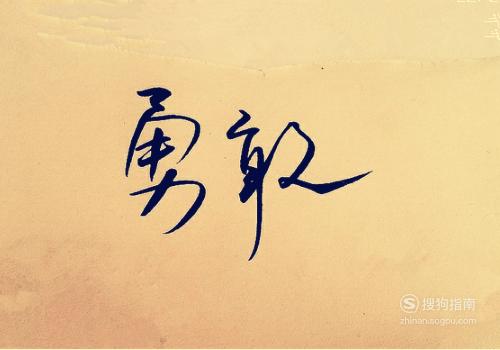 勇敢
搜狗指南
zhinan.sogou.com